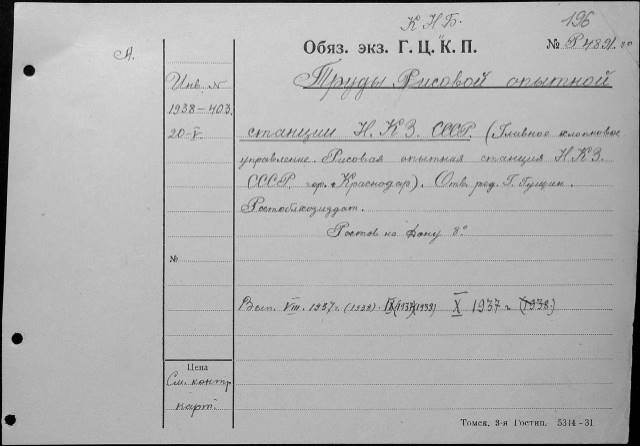 К.Н.Б. 196
А.
Обяз. экз. Г.Ц.К.П. № Р4891.
Инв. №
1938–403.
20-V.
Труды Рисовой опытной
станции Н.К.З. СССР. (Главное хлопковое
управление. Рисовая опытная станция Н.К.З.
СССР. гор. Краснодар). Отв. ред. Г. Гущин.
Ростоблкнигиздат.
Ростов на Дону 8°
№
Вып. VIII. 1937г. (1938). IX (1938) X 1937 г. (1938.)
Цена
См. контр.
карт.
Томск. 3-я Гостип. 5314–31